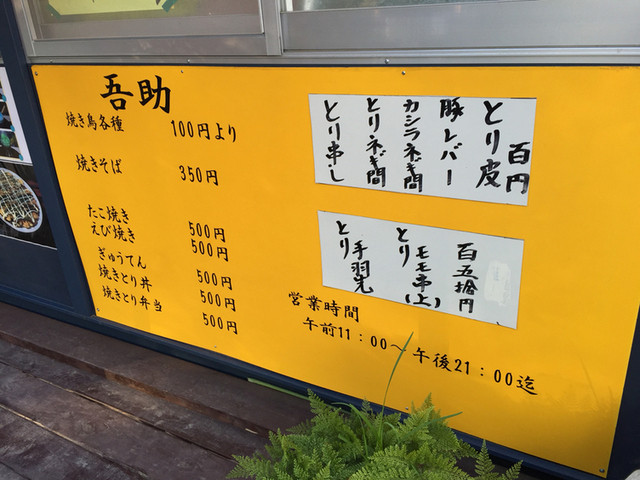 吾助
焼き鳥各種 100円より
焼きそば 350円
たこ焼き 500円
えび焼き 500円
ぎゅうてん 500円
焼きとり丼 500円
焼きとり弁当 500円
百円
とり皮
豚レバー
カシラネギ間
とりネギ間
とり串し
百五拾円
とりモモ串(上)
とり手羽先
営業時間
午前11:00~午後21:00迄